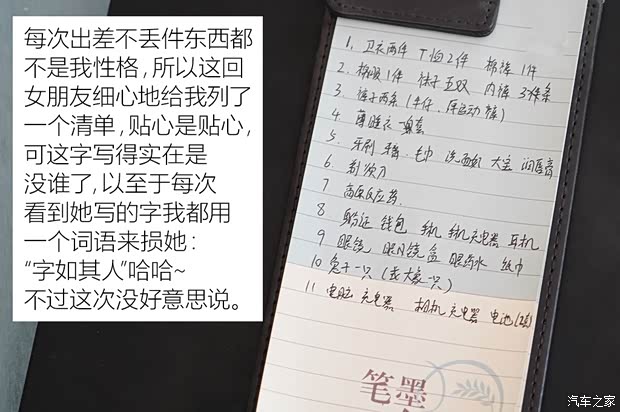 每次出差不丢件东西都
不是我性格，所以这回
女朋友细心地给我列了
一个清单，贴心是贴心，
可这字写得实在是
没谁了，以至于每次
看到她写的字我都用
一个词语来损她：
“字如其人”哈哈~
不过这次没好意思说。
1、卫衣两件 T恤2件 1件
2、棉服1件 袜子五双 内裤 3件条
3 裤子两条（牛仔、厚运动裤）
4 薄睡衣一套
5、牙刷 牙膏、毛巾 洗面奶 大宝 润唇膏
6 剃须刀
7 高原反应药
8 身份证 钱包 手机 手机充电器 耳机
9 眼镜 眼镜盒 眼药水 纸巾
10 兔子一只（或大象一只）
11 电脑 充电器 相机 充电器 电池
笔墨
汽车之家